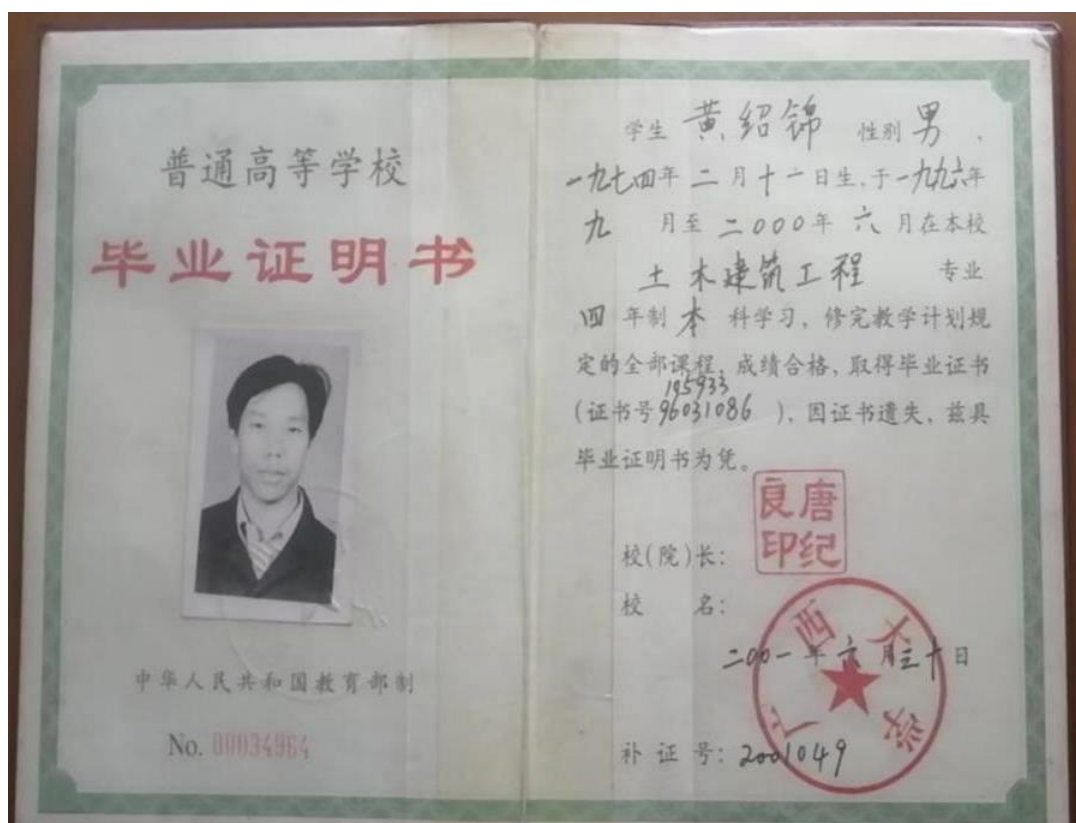 普通高等学校
毕业证明书
中华人民共和国教育部制
No. 00034964
学生 黄绍锦 性别 男 、
一九七四年 二 月 十一 日生,于一九九六年
九 月至 二000年 六 月在本校
土木建筑工程 专业
四 年制 本 科学习，修完教学计划规
定的全部课程，成绩合格，取得毕业证书
195933
(证书号96031086 )，因证书遗失，兹具
毕业证明书为凭。
唐纪良印
校(院)长：
校 名：
广西大学
二00一年 六 月三十日
补 证 号：2001049